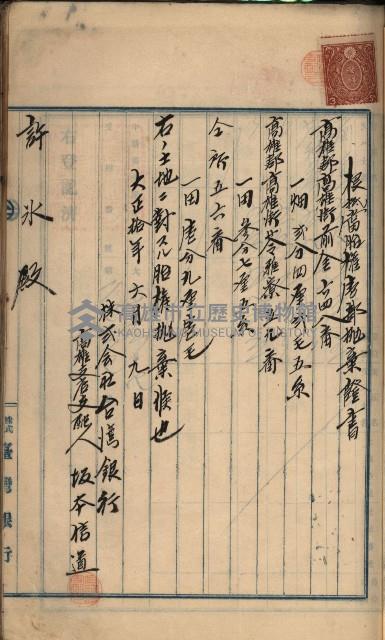 根抵當胎權一部抛棄證書
高雄郡高雄街前金六四八番
一畑 貳分四厘 毛五糸
高雄郡高雄街苓雅寮五九番
一田 分七厘五糸
仝所五六番
一田 壹分九厘 毛
右ノ土地ニ對スル胎權抛棄候也
大正拾年六月九日
株式会社台湾銀行
高雄支店支配人 坂本信道
許氷殿
株式
臺灣銀行
高雄市立歷史博物館